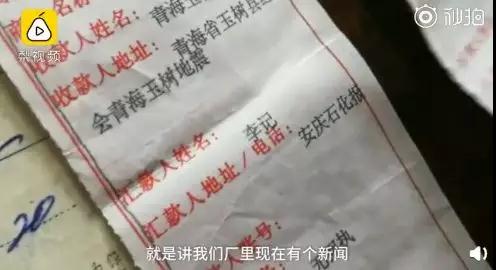 梨视频
秒拍
收款人姓名：
青海省玉树县
收款人地址：
会青海玉树地震
汇款人姓名：
李记
汇款人地址/电话：
安庆石化报
20
就是讲我们厂里现在有个新闻